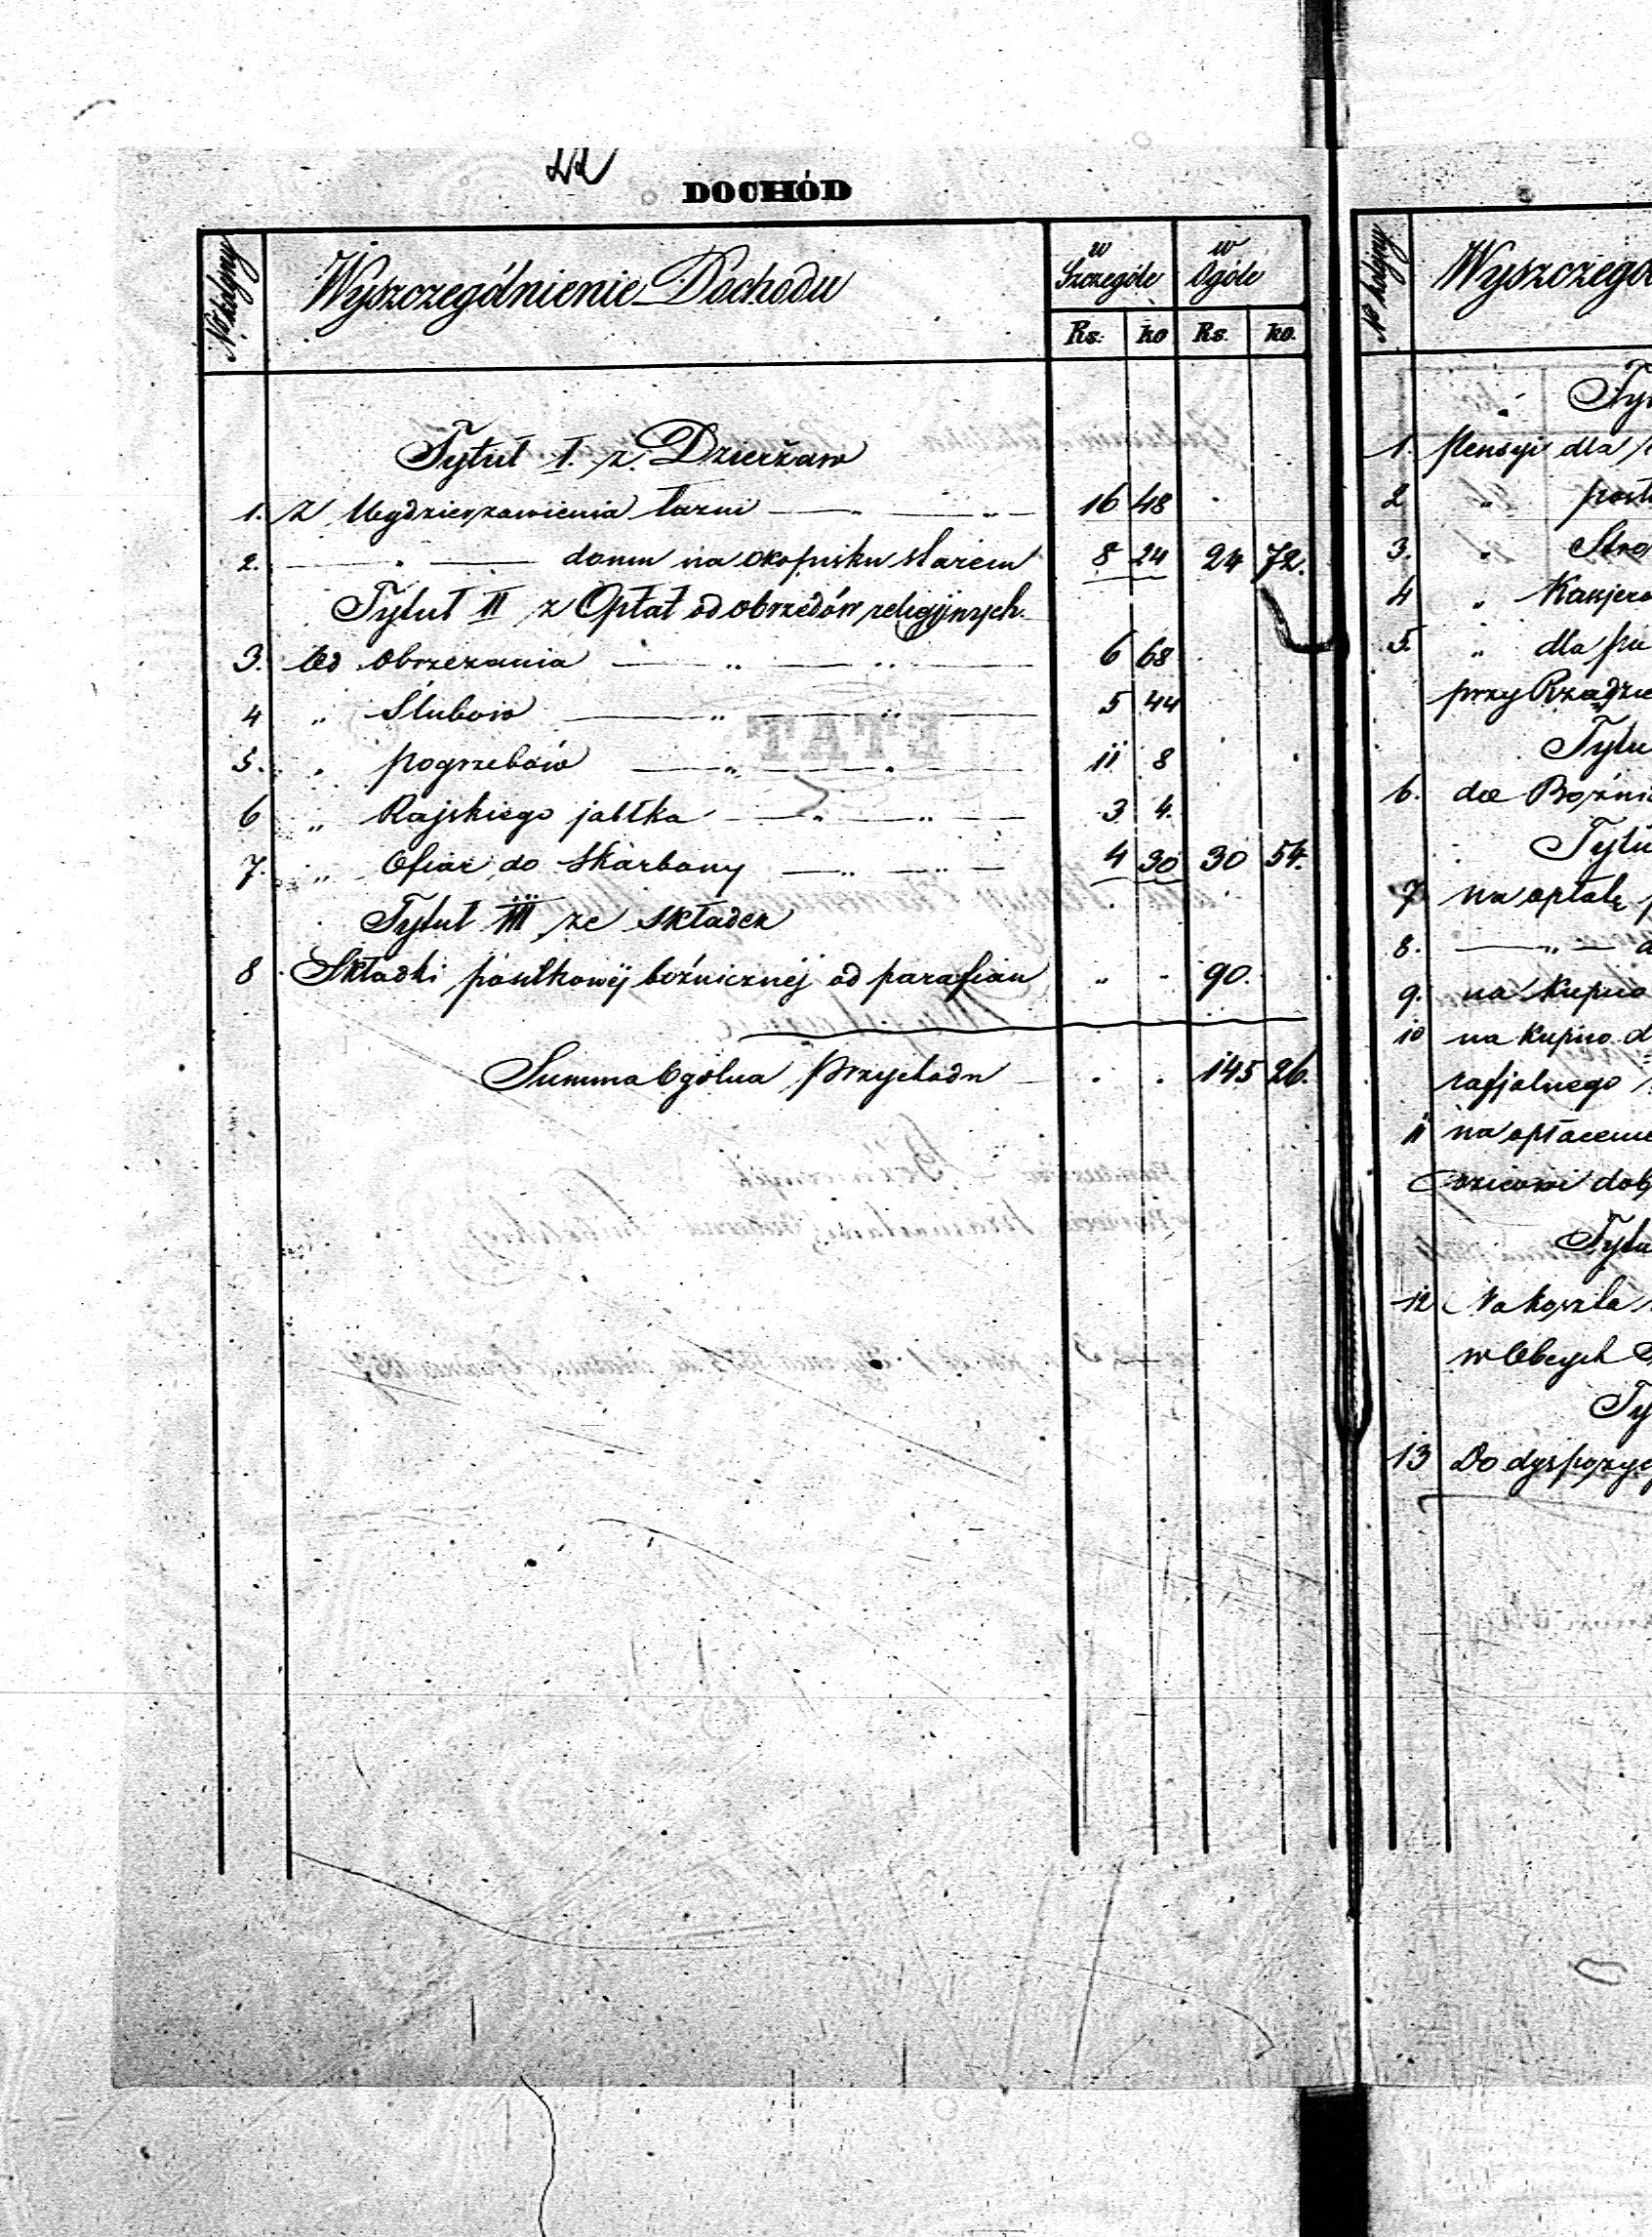 22
DOCHÓD
No kolejny
Wyszczególnienie Dochodu
w Szczególe
w Ogóle
Rs. ko Rs. ko.
Tytuł I. z Dzierżaw
1. Z Wydzierżawienia łaźni — „ — „ — 16 48
2. — „ — domu na okopisku starem 8 24 24 72.
Tytuł II z Opłat od obrzędów religijnych
3. Od obrzezania — „ — „ — 6 68
4 „ Ślubow — „ — „ — 5 44
5. „ pogrzebów — „ — „ — 11 8
6 „ Rajskiego jabłka — „ — „ — 3 4.
7. „ Ofiar do skarbony — „ — „ — 4 30 30 54.
Tytuł III ze składek
8 Składki posiłkowéj bóźnicznéj od parafian „ - 90.
Summa Ogólna Przychodu . . 145 26.
ETAT
No kolejny
Wyszczegól
Tyt
1. Pensyi dla
2 „
3. „ Stró
4 „ Kassjero
5. „ dla
przy
Tytu
6. do Bóźni
Tytu
7 na opłatę
8. — „ — d
9. na kupno
10 na kupno d
rafjalnego
11 na opłacenie
dzicowi dob
Tytu
12 Na koszta
w Obcych
Ty
13 Do dyspozyc